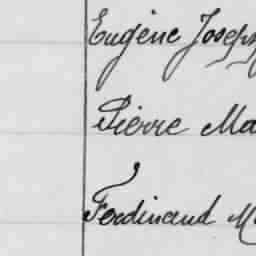 Eugène Joseph
Pierre Ma
Ferdinand M